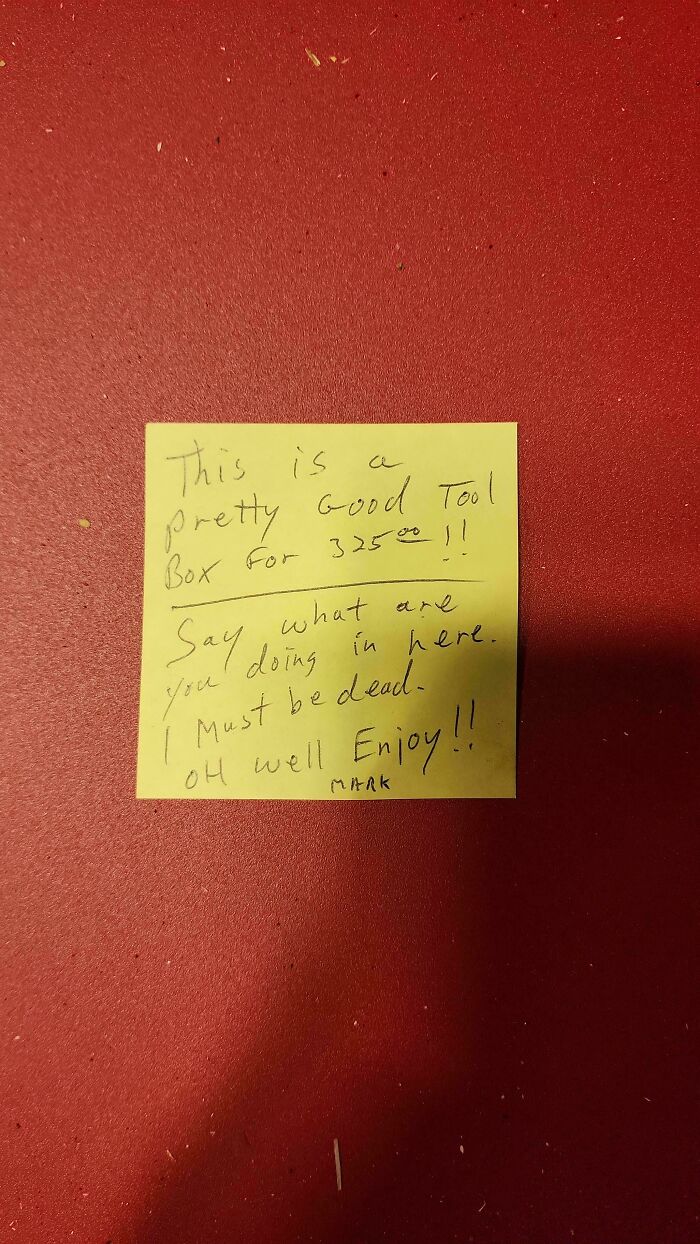 This is a
pretty Good Tool
Box For 325⁰⁰ !!
Say what are
you doing in here.
I Must be dead.
OH well Enjoy!!
MARK